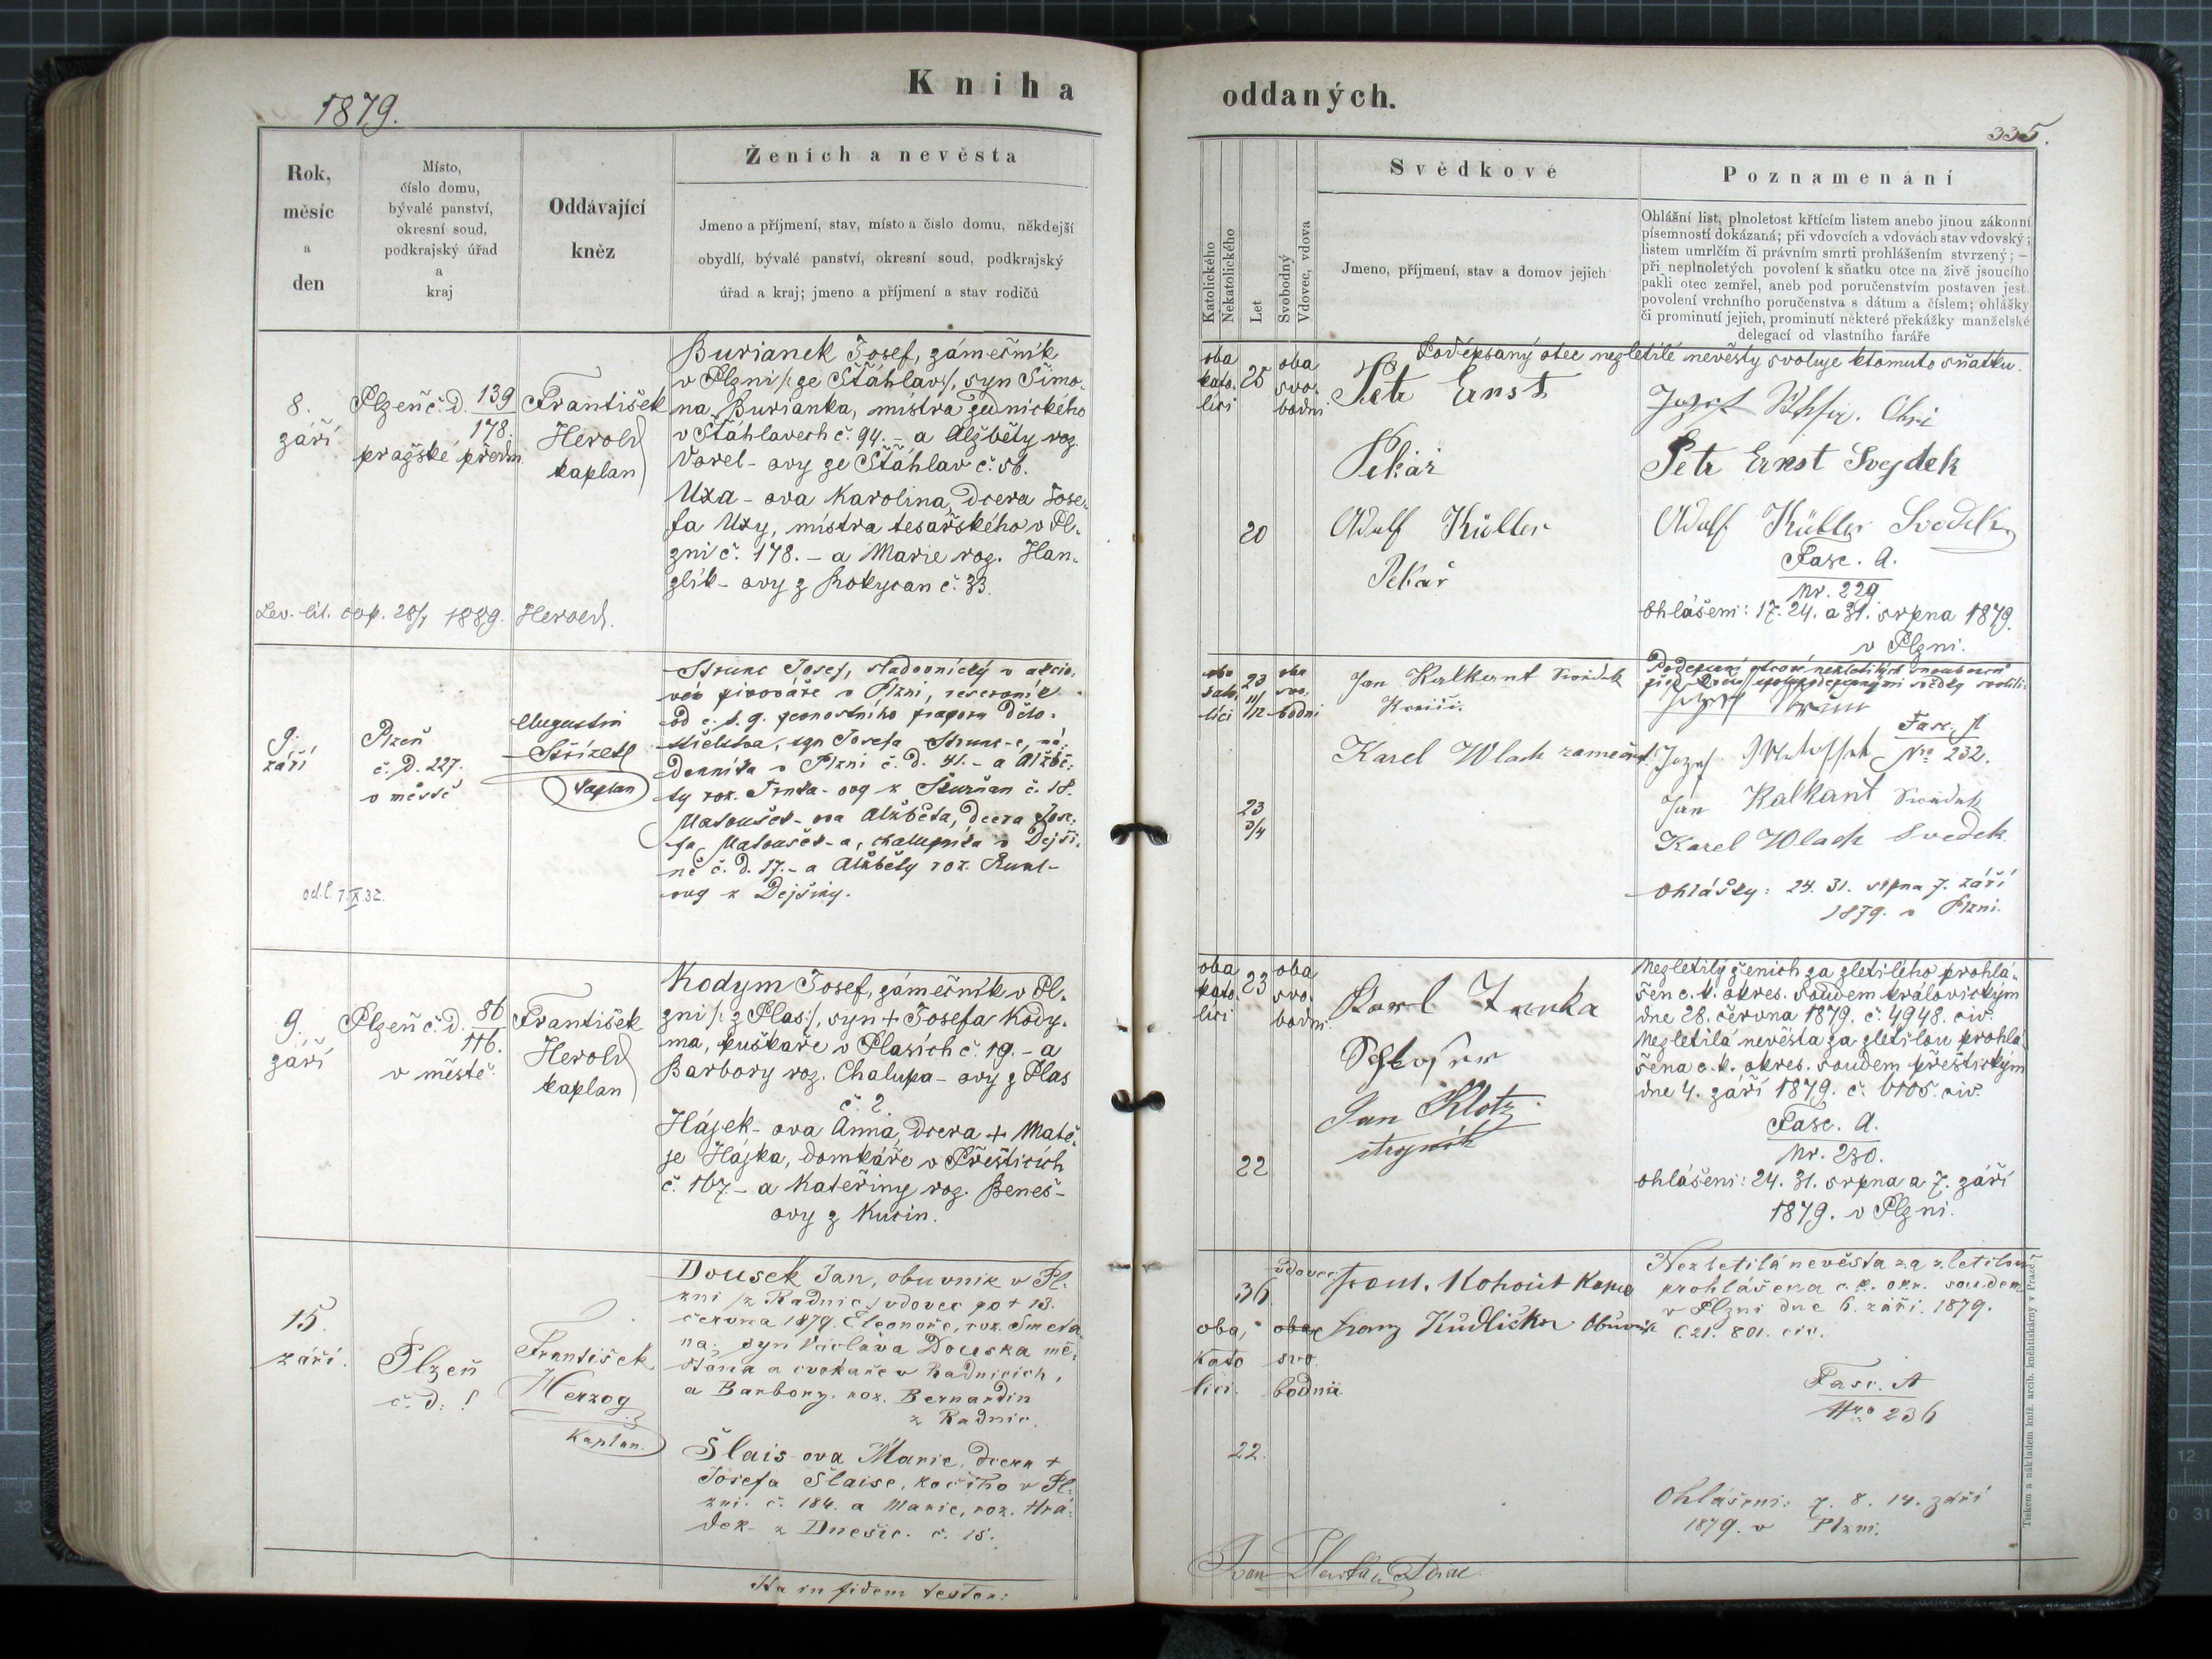 Kniha
1879.
Rok,
měsíc
a
den
Místo,
číslo domu,
bývalé panství,
okresní soud,
podkrajský úřad
a
kraj
Oddávající
kněz
Ženich a nevěsta
Jmeno a příjmení, stav, místo a číslo domu, někdejší
obydlí, bývalé panství, okresní soud, podkrajský
úřad a kraj; jmeno a příjmení a stav rodičů
8.
září
Plzeň č. d. 139
178.
pražské předm
František
Herold
kaplan
Burianek Josef, zámečník
v Plzni /: ze Šťáhlav :/, syn Šimo-
na Burianka, mistra zednického
v Šťáhlavech č. 94. – a Alžběty roz.
Vorel-ovy ze Šťáhlav č. 56.
Uxa-ova Karolina, dcera Jose-
fa Uxy, mistra tesařského v Pl-
zni č. 178. – a Marie roz. Han-
zlík-ovy z Rokycan č. 33.
Lev. lit. cop. 28/7 1889. Herold.
9.
září
Plzeň
č. D. 227.
v městě
Augustin
Střízek
Kaplan
Strunc Josef, sladovnický v akcio-
vém pivováře v Plzni, reservník
od c. k. 9. pevnostního praporu Dělo-
střelstva, syn Josefa Strunc-e, ná-
denníka v Plzni č. D. 41. – a Alžbě-
ty roz. Trnka-ovy z
Matoušek-ova Alžběta, dcera Jose-
fa Matoušek-a, chalupníka v Dejši-
ně č. D. 17. – a Alžběty roz.
ovy z Dejšiny.
od.l. 7.X.32.
9.
září
Plzeň č. d. 86
116.
v městě
František
Herold
kaplan
Kodym Josef, zámečník v Pl-
zni /: z Plas :/, syn + Josefa Kody-
ma, puškaře v Plasích č. 19. – a
Barbory roz. Chalupa-ovy z Plas
č. 2
Hájek-ova Anna, dcera + Matě-
je Hájka, domkáře v Přešticích
č. 167. – a Kateřiny roz. Beneš-
ovy z Kucin.
15.
září.
Plzeň
č. d. !
František
Herzog
Kaplan.
Dousek Jan, obuvník v Pl-
zni /z Radnic/ vdovec po + 13.
června 1879. Eleonoře, roz. Smeta
na, syn Václava Douska mě-
šťana a cvokaře v Radnicích,
a Barbory. roz. Bernardin
z Radnic.
Šlais-ova Marie, dcera +
Josefa Šlaise, kočího v Pl-
zni. č. 184. a Marie, roz. Hrá-
dek z Dnešic. č. 15.
Ita in fidem testor:
oddaných.
335.
Katolického
Nekatolického
Let
Svobodný
Vdovec, vdova
Svědkové
Jmeno, příjmení, stav a domov jejich
Poznamenání
Ohlášní list, plnoletost křtícím listem anebo jinou zákonní
písemností dokázaná; při vdovcích a vdovách stav vdovský;
listem umrlčím či právním smrti prohlášením stvrzený; –
při neplnoletých povolení k sňatku otce na živě jsoucího
pakli otec zemřel, aneb pod poručenstvím postaven jest
povolení vrchního poručenstva s dátum a číslem; ohlášky
či prominutí jejich, prominutí některé překážky manželské
delegací od vlastního faráře
Podepsaný otec nezletilé nevěsty svoluje ktomuto sňatku.
oba
kato-
líci
25
oba
svo-
bodni
Petr Ernst
Pekář
20
Adolf Küller
Pekař
Petr Ernst Svejdek
Adolf Küller Svedek
Fasc. A.
Nr. 229
Ohlášeni: 17. 24. a 31. srpna 1879.
v Plzni.
oba
kato-
líci
23
oba
svo-
bodni
Jan Kalkant Svědek
Karel Wlach zamečn.
23
3/4
Fasc. A
No 232.
Jan Kalkant Svědek
Karel Wlach Svedek
Ohlášky: 24. 31. srpna 7. září
1879. v Plzni.
oba
kato-
líci
23
oba
svo-
bodni
Karl Zanka
Schlosser
Jan Klotz
22
Nezletilý ženich za zletilého prohlá-
šen c. k. okres. soudem královickým
dne 28. června 1879. č. 4948. civ.
Nezletilá nevěsta za zletilou prohlá-
šena c. k. okres. soudem přeštickým
dne 4. září 1879. č. 6105. civ.
Fasc. A.
Nr. 230.
ohlášeni: 24. 31. srpna a 7. září
1879. v Plzni.
vdovec
36
oba,
kato
líci.
svo
bodná
Frant. Kohout
Franz Kudlička Obuvník
22.
Nezletilá nevěsta za zletilou
prohlášena c. k. okr. soudem
v Plzni dne 6. září. 1879.
č. 21. 801. civ.
Fasc. A
Nro 236
Ohlášeni: 7. 8. 14. září
1879. v Plzni.
Tiskem a nákladem kníž. arcib. knihtiskárny v Praze.